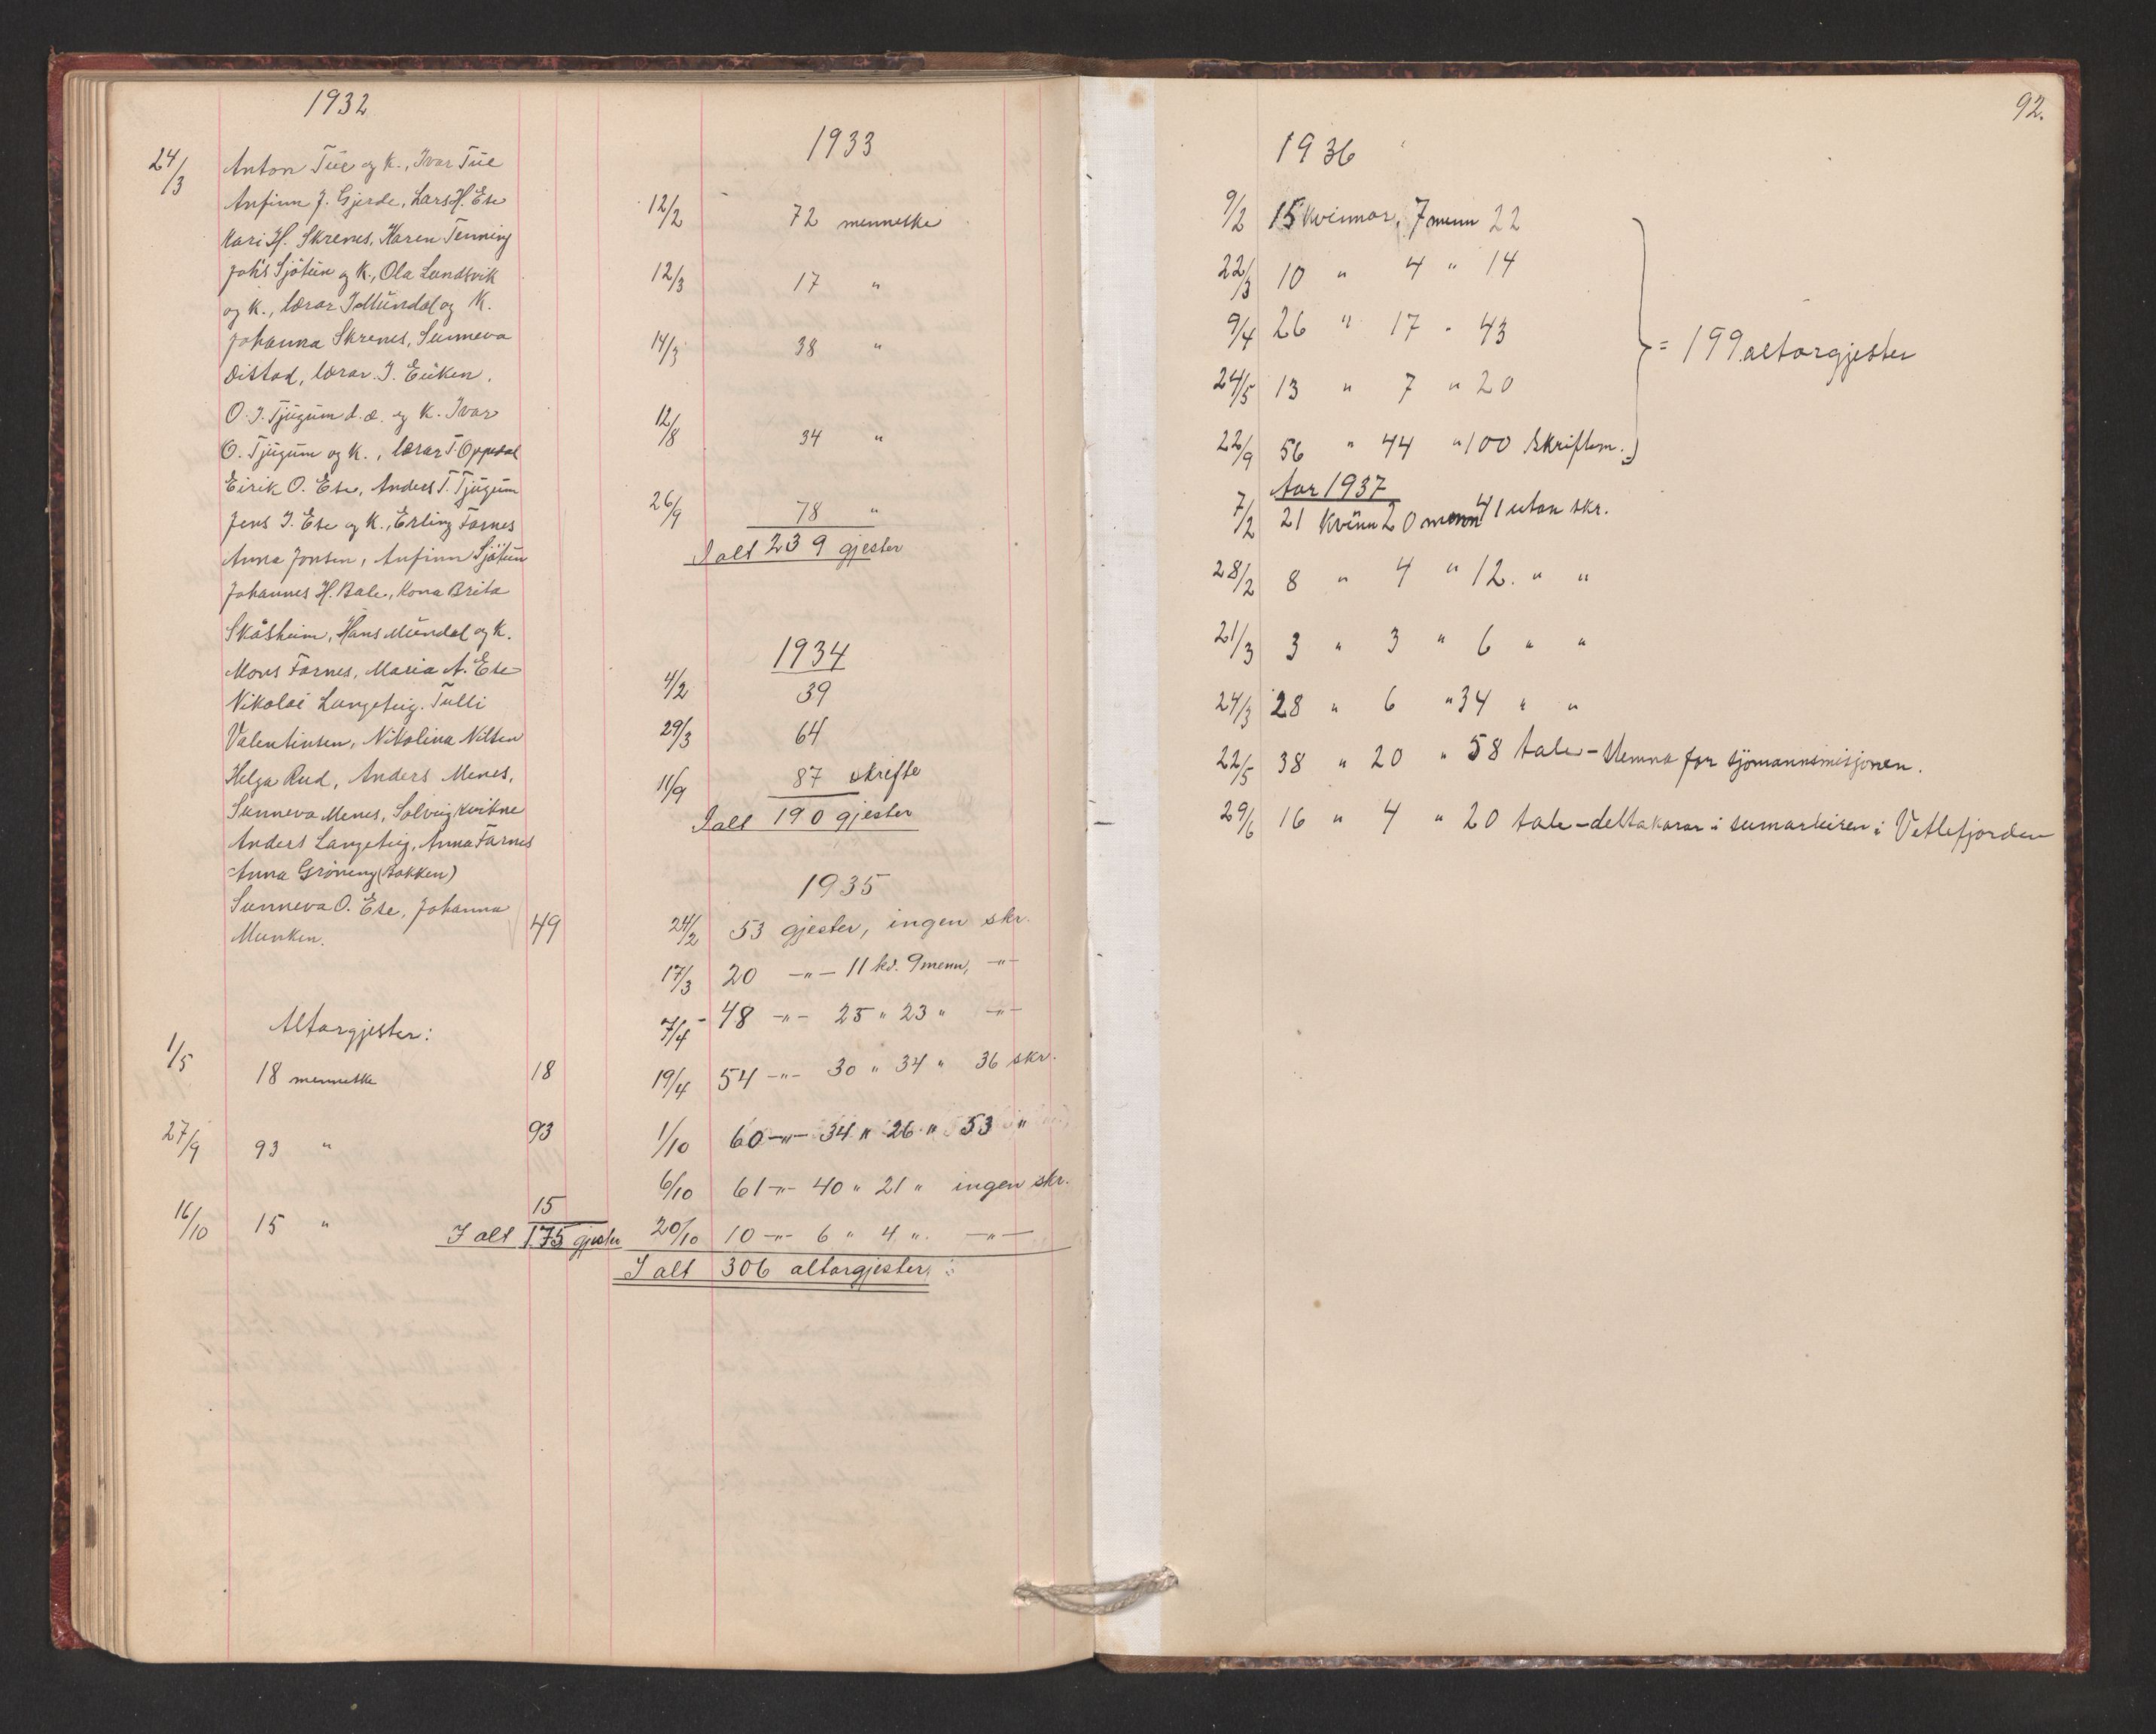 1932
24/3 Anton Tue og k., Ivar Tue
Anfinn J. Gjerde, Lars H. Ese
Kari H. Skrenes, Karen Tenning
Joh's Sjötun og k., Ola Lundsvik
og k., lærar I Mundal og k.
Johanna Skrenes, Sunneva
Distad, lærar J. Eiken.
O. J. Tjugum d.e. og k. Ivar
O. Tjugum og k., lærar T. Oppedal
Eirik O. Ese, Anders T. Tjugum
Jens J. Ese og k., Erling Farnes
Anna Jonsen, Anfinn Sjötun
Johannes H. Bale, kona Brita
Skåsheim, Hans Mundal og k.
Mons Farnes, Maria A. Ese
Nikolai Langeteig. Tulli
Valentinsen, Nikolina Nilsen
Helga Rud, Anders Menes,
Sunneva Menes, Solveig Kvikne
Anders Langeteig, Anna Farnes
Anna Gröneng (Bakken)
Sunneva O. Ese, Johanna
Munken. 49
Altargjester:
1/5 18 menneske 18
27/9 93 " 93
16/10 15 " 15
I alt 175 gjester
1933
12/2 72 menneske
12/3 17 "
14/3 38 "
12/8 34 "
26/9 78 "
I alt 239 gjester
1934
4/2 39
29/3 64
11/9 87 skrifte
I alt 190 gjester
1935
24/2 53 gjester, ingen skr.
17/3 20 -"- 11 kv. 9 menn, -"-
7/4 48 -"- 25 " 23 " -"-
19/4 54 -"- 30 " 34 " 36 skr.
1/10 60 -"- 34 " 26 " 53 "
6/10 61 -"- 40 " 21 " ingen skr.
20/10 10 -"- 6 " 4 " -"-
I alt 306 altargjester
92.
1936
9/2 15 kvinnor, 7 menn 22
22/3 10 " 4 " 14
9/4 26 " 17 " 43
= 199 altargjester
24/5 13 " 7 " 20
22/9 56 " 44 " 100 skriftem.
Aar 1937
7/2 21 kvinn 20 menn 41 utan skr.
28/2 8 " 4 " 12. " "
21/3 3 " 3 " 6 " "
24/3 28 " 6 " 34 " "
22/5 38 " 20 " 58 tale - Stemna for sjömannsmisjonen.
29/6 16 " 4 " 20 tale - deltakarar i sumarleiren i Vetlefjorden